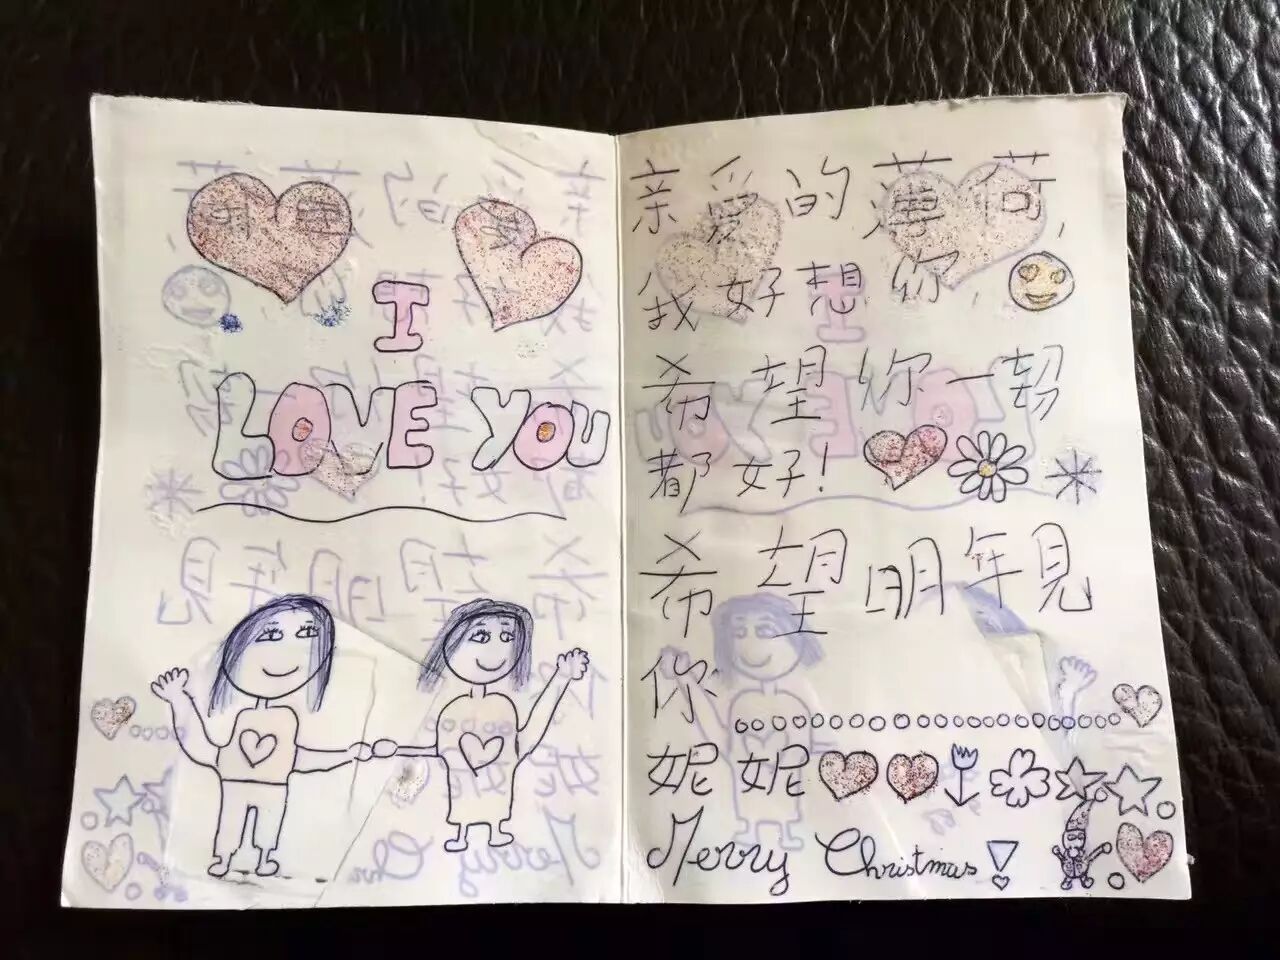 I
LOVE YOU
亲爱的薄荷
我好想你
希望你一切
都好！
希望明年見
你
妮妮
Merry Christmas!